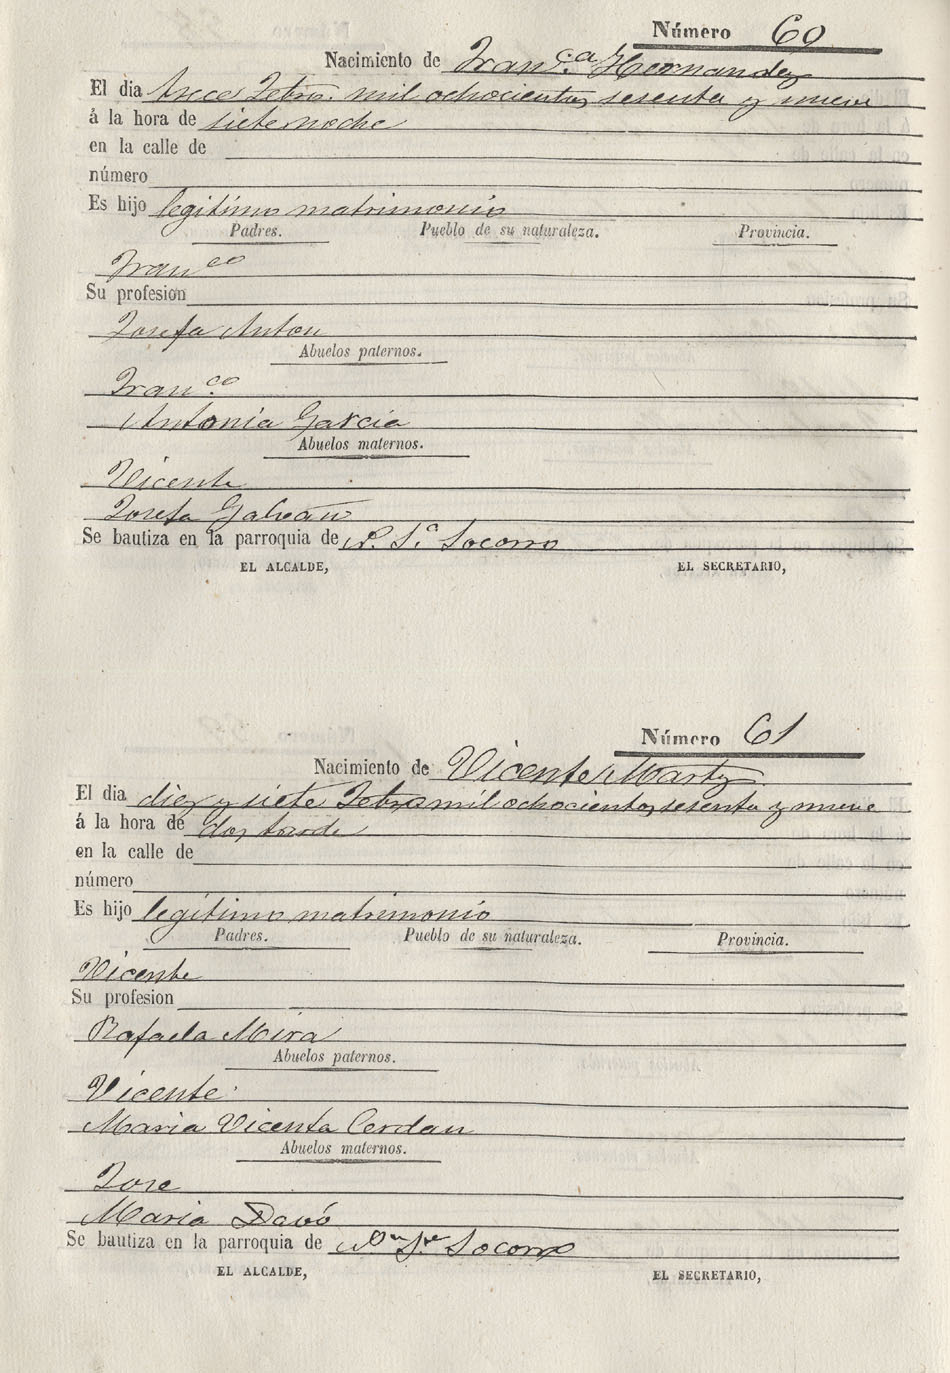 Número 60
Nacimiento de Fran.ca Hernandez
El dia trece Febro. mil ochocientos sesenta y nueve
á la hora de siete noche
en la calle de
número
Es hijo legitimo matrimonio
Padres. Pueblo de su naturaleza. Provincia.
Franco
Su profesion
Josefa Anton
Abuelos paternos.
Fran.co
Antonia Garcia
Abuelos maternos.
Vicente
Josefa Galvañ
Se bautiza en la parroquia de N. S.a Socorro
EL ALCALDE, EL SECRETARIO,
Número 61
Nacimiento de Vicente Martz
El dia diez y siete Febro mil ochocientos sesenta y nueve
á la hora de dos tarde
en la calle de
número
Es hijo legitimo matrimonio
Padres. Pueblo de su naturaleza. Provincia.
Vicente
Su profesion
Rafaela Mira
Abuelos paternos.
Vicente
Maria Vicenta Cerdan
Abuelos maternos.
Jose
Maria Davó
Se bautiza en la parroquia de Socorro
EL ALCALDE, EL SECRETARIO,